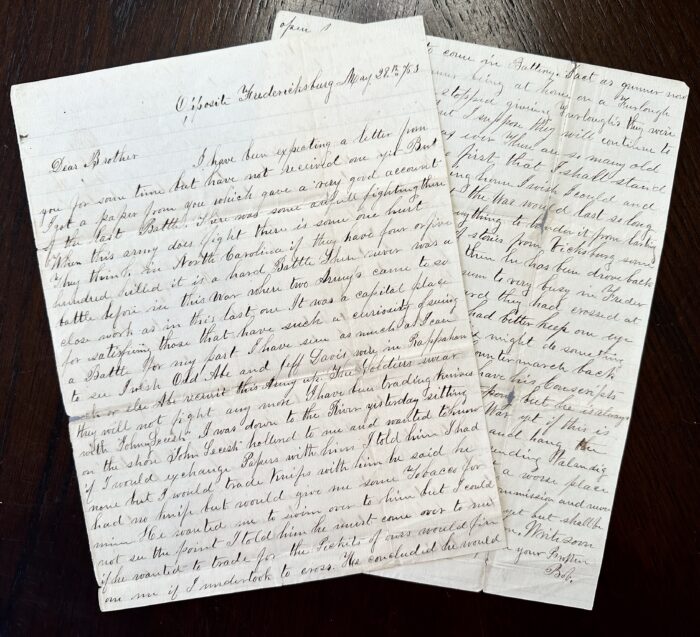 Opposite Fredericksburg May 28th /63
Dear Brother
I have been expecting a letter from
you for some time but have not received one yet But
I got a paper from you which gave a very good account
of the last Battle. There was some awfull fighting there
When this army does fight there is some one hurt
They think in North Carolina if they have four or five
hundred killed it is a hard Battle There never was a
battle before in this War where two Army's came to so
close work as in this last one It was a capital place
for satisfying those that have such a curiosity of seeing
a Battle For my part I have seen as much as I care
to see I wish Old Abe and Jeff Davis were in Rappahan
or else Abe recruit this Army up The Soldiers swear
they will not fight any more I have been trading knives
with "John Secesh" I was down to the River yesterday sitting
on the shore John Secesh hollend to me and wanted to know
if I would exchange Papers with him I told him I had
none but I would trade knifs with him he said he
had no knif but would give me some Tobacco for
mine He wanted me to swim over to him but I could
not see the point I told him he must come over to me
if he wanted to trade for the Pickets of ours would fire
on me if I undertook to cross. He concluded he would
open
to come in Battery. I act as gunner now
being at home on a Furlough
stopped giving Furlough's they were
but I suppose they will continue to
ever There are so many old
first, that I shall stand
going home I wish I could and
the War would last so long
anything to hinder it from lasting
stories from Vicksburg some
then he has ben drove back
seem to very busy in Freder
they had crossed at
had better keep one eye
might do something
countermarch back
have his Conscripts
but he is always
War yet if this is
and hang the
a worse place
commission and
yet but shall be
Write soon
your Brother
Bob.